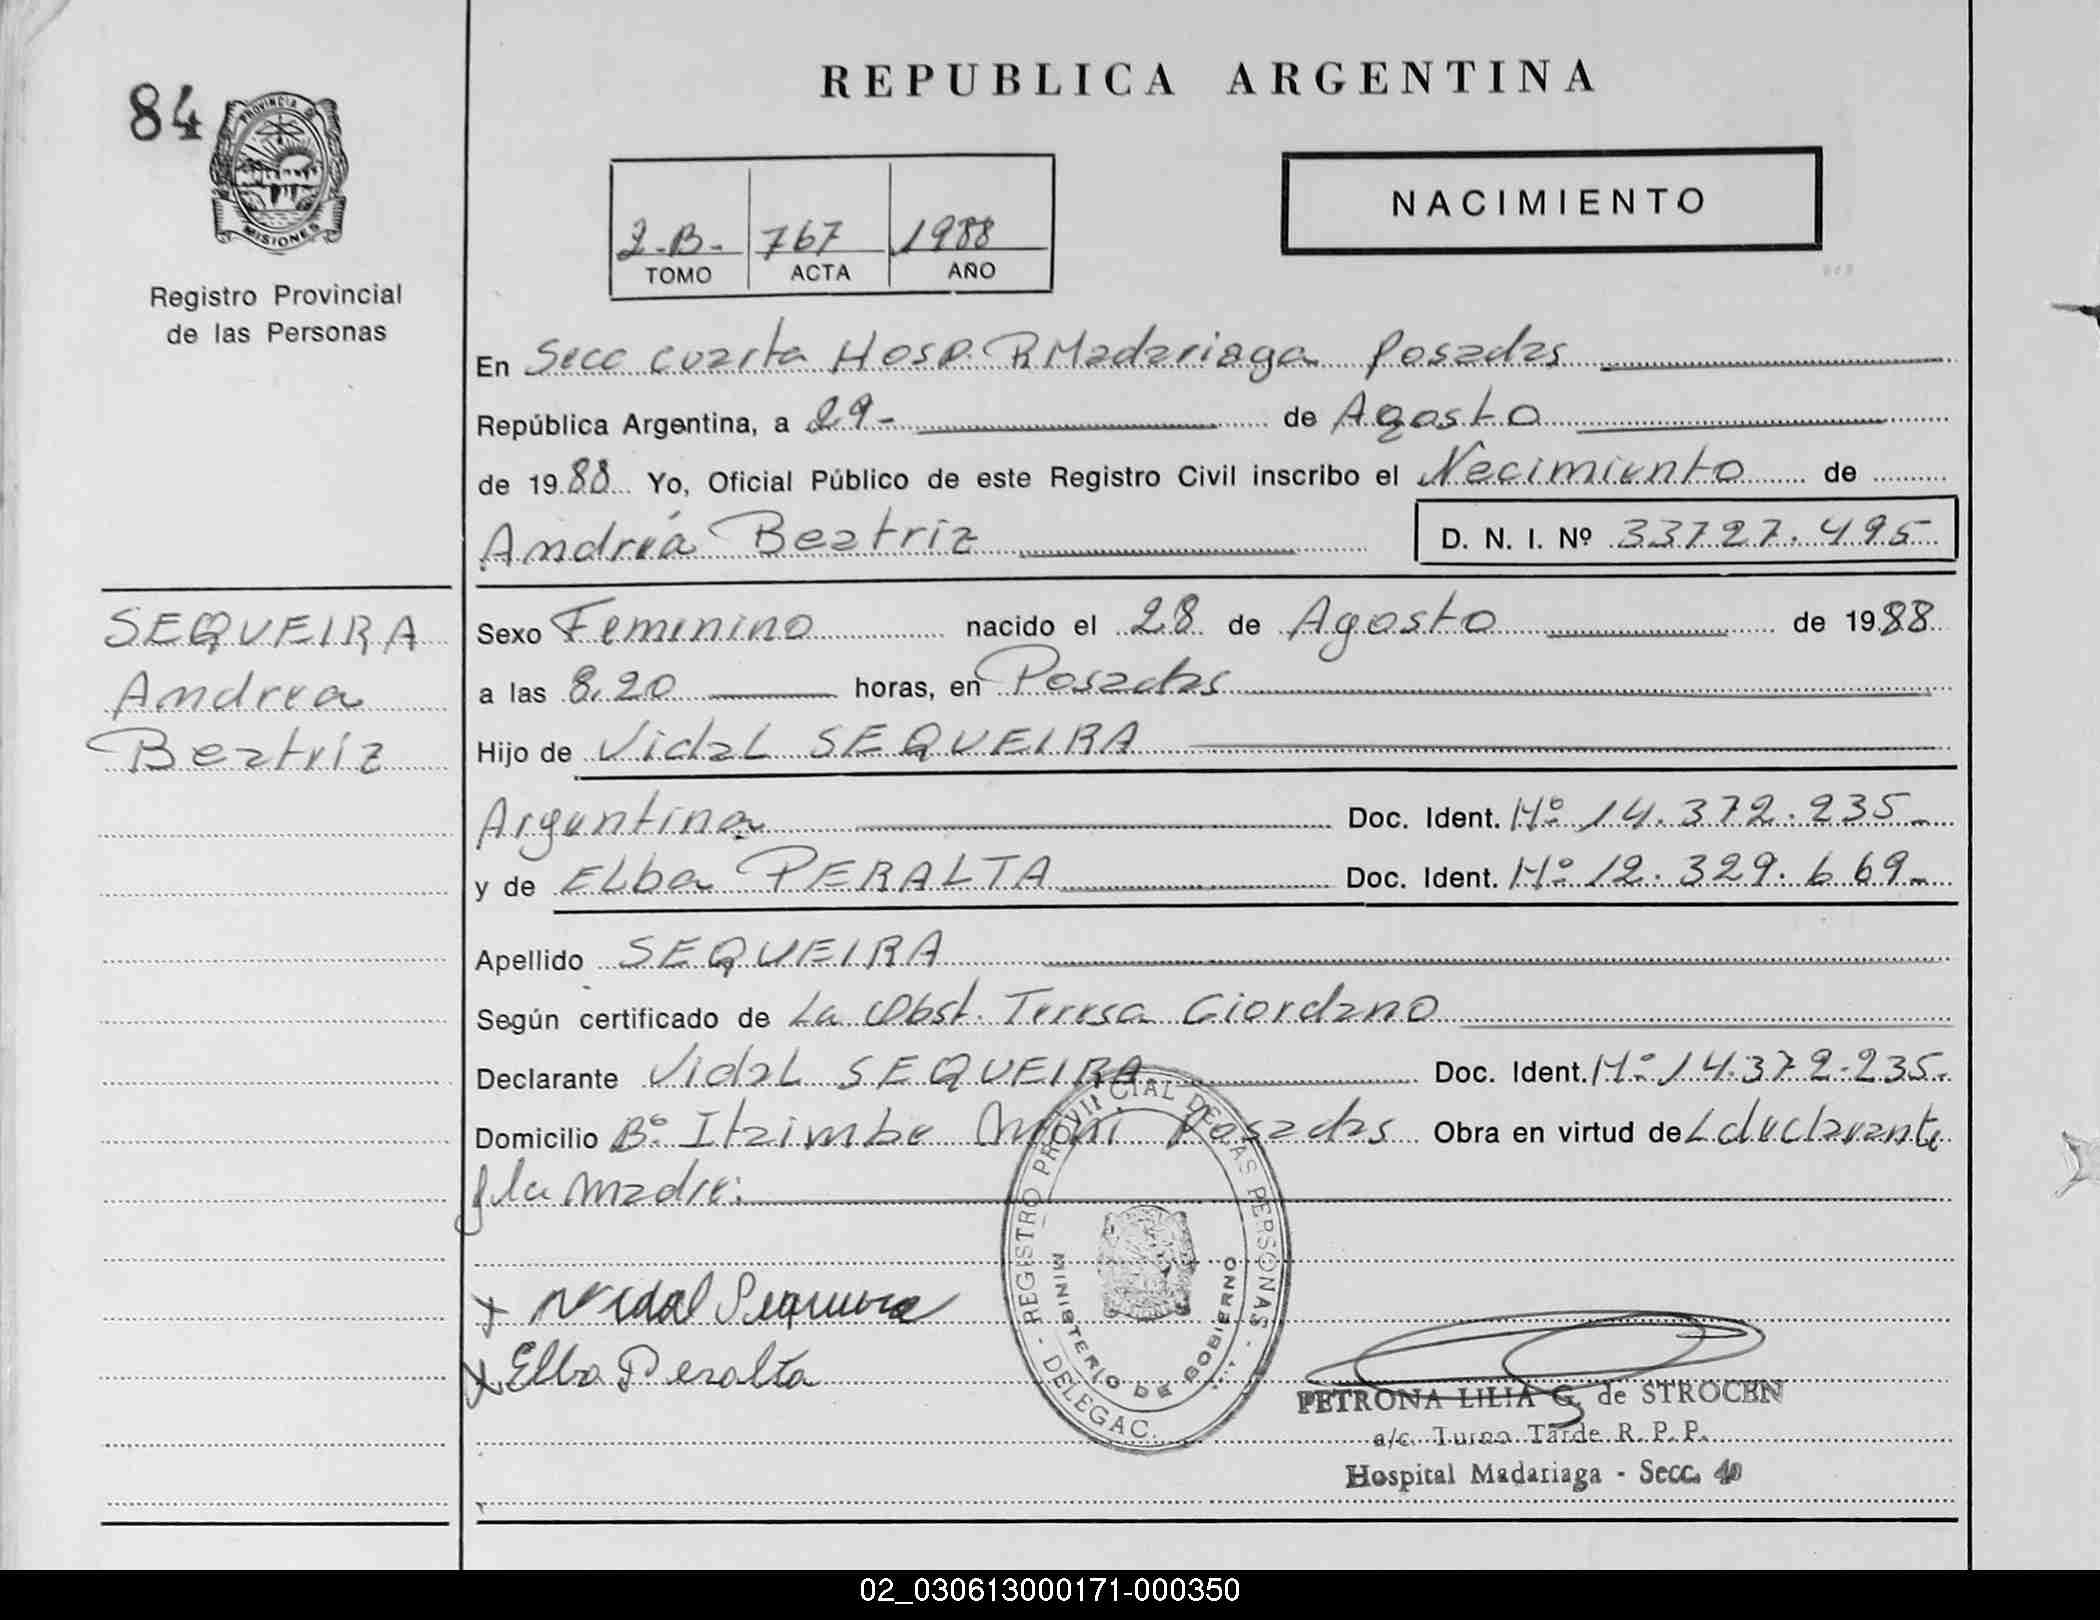 REPUBLICA ARGENTINA
84
PROVINCIA DE
MISIONES
Registro Provincial
de las Personas
2-B- 767 1988
TOMO ACTA AÑO
NACIMIENTO
En Secc cuarta Hosp. R Madariaga Posadas
República Argentina, a 29- de Agosto
de 1988 Yo, Oficial Público de este Registro Civil inscribo el Nacimiento de
Andrea Beatriz D. N. I. Nº 33727.495
SEQUEIRA
Andrea
Beatriz
Sexo Femenino nacido el 28 de Agosto de 1988
a las 8.20 horas, en Posadas
Hijo de Vidal SEQUEIRA
Argentina Doc. Ident. Nº 14.372.235-
y de Elba PERALTA Doc. Ident. Nº 12.329.669-
Apellido SEQUEIRA
Según certificado de La Obst. Teresa Giordano
Declarante Vidal SEQUEIRA Doc. Ident. Nº 14.372.235-
Domicilio Bº Itaimbe Posadas Obra en virtud de L declarante
y la madre:
x Vidal Sequeira
x Elba Peralta
- REGISTRO PROVINCIAL DE LAS PERSONAS -
MINISTERIO DE GOBIERNO
DELEGAC.
PETRONA LILIA G. de STROCEN
a/c. Turno Tarde R. P. P.
Hospital Madariaga - Secc.
02_030613000171-000350